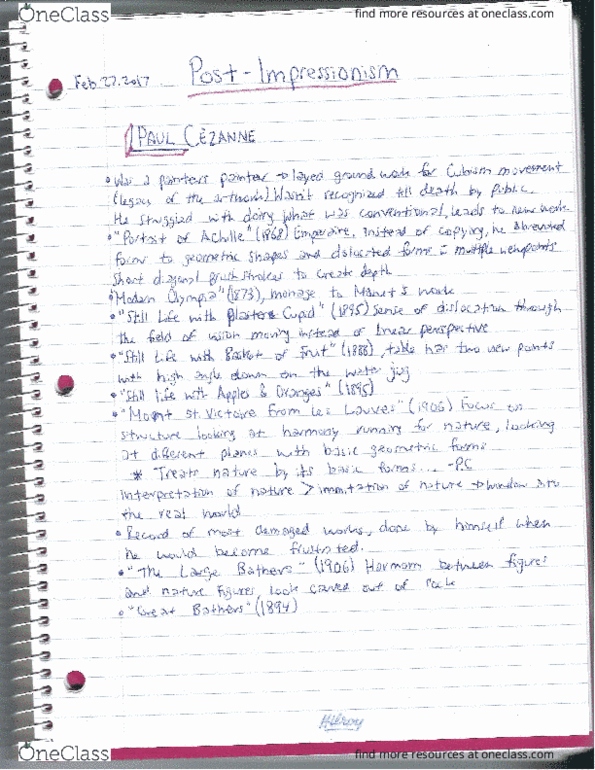 OneClass
find more resources at oneclass.com
Feb.27.2017
Post-Impressionism
PAUL CÉZANNE
• Was a painters painter → layed ground work for Cubism movement
(legacy of the artwork) Wasn't recognized till death by public.
He struggled with doing what was conventional, leads to new work.
• "Portrait of Achille" (1868) Emperaire, instead of copying, he abrevated
forms to geometric shapes and dislocated forms in multiple viewpoints
short diagonal brush strokes to create depth
• "Modern Olympia" (1873), homage to Manet's work
• "Still Life with Plaster Cupid" (1895) sense of dislocation through
the field of vision moving instead of linear perspective
• "Still Life with Basket of Fruit" (1888), table has two view points
with high angle down on the water jug
• "Still life with Apples & Oranges" (1895)
• "Mount St. Victoire from Les Lauves" (1906) Focus on
structure looking at harmony running for nature, looking
at different planes with basic geometric forms
* Treats nature by its basic forms... -P.C
interpretation of nature > immitation of nature → window into
the real world
• Record of most damaged works, done by himself when
he would become frustrated.
• "The Large Bathers" (1906) Harmony between figures
and nature figures, look carved out of rock
• "Great Bathers" (1894)
Hilroy
OneClass
find more resources at oneclass.com